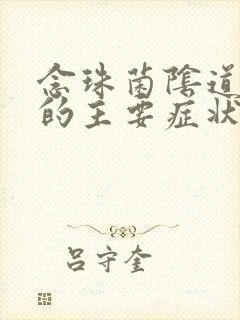 念珠菌陰道
的主要症狀
吕守奎